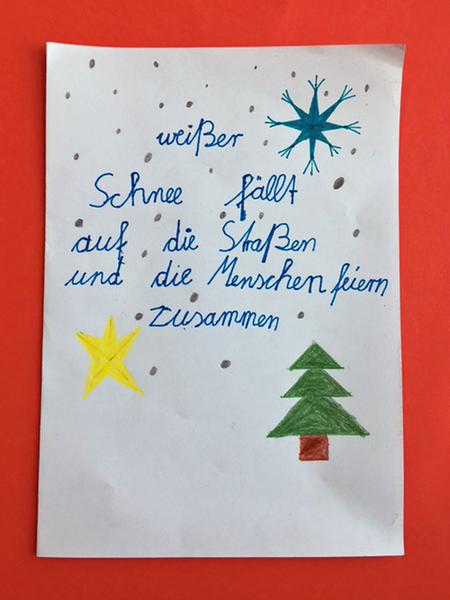 weißer
Schnee fällt
auf die Staßen
und die Menschen feiern
zusammen